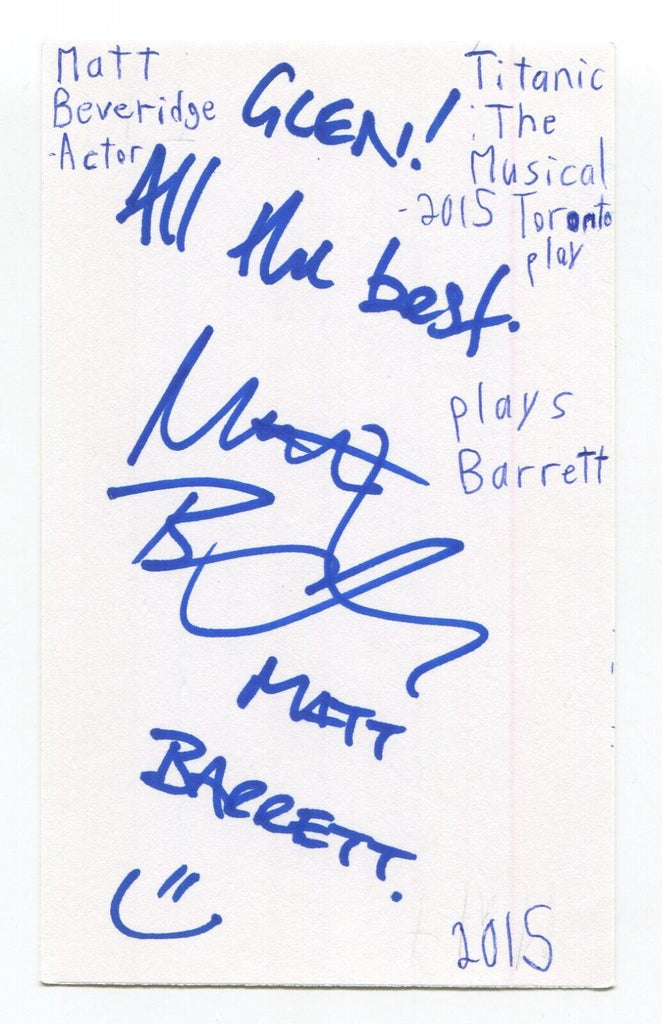 Matt
Beveridge
-Actor
Titanic
: The
Musical
-2015 Toronto
play
GLEN!
All the best.
plays
Barrett
Matt
B
MATT
BARRETT.
2015